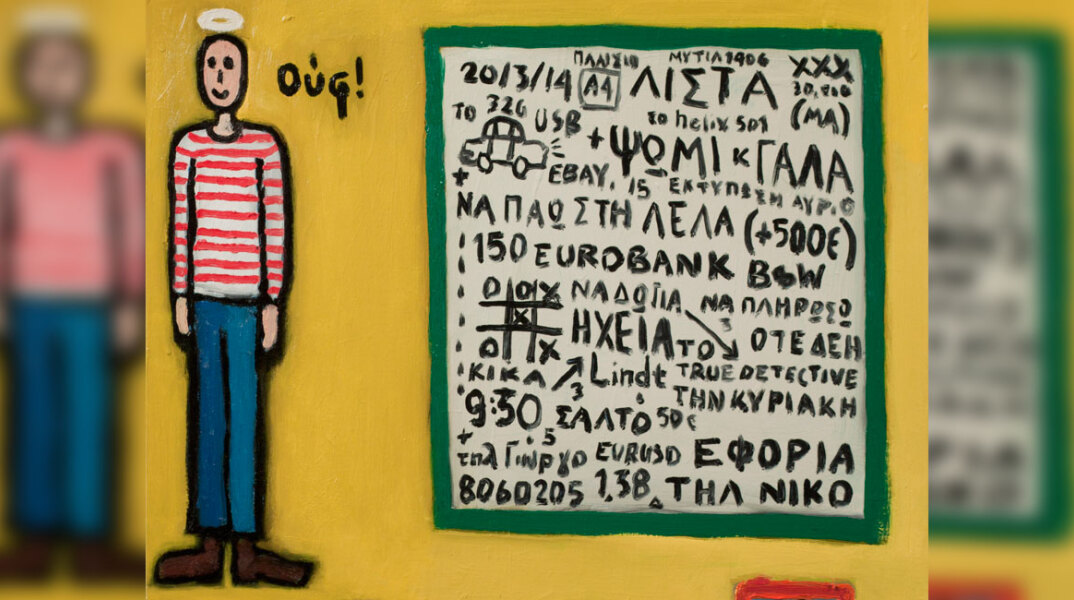 ούφ!
ΠΛΑΙΣΙΟ ΜΥΤΙΛ 1906
20/3/14 A4 ΛΙΣΤΑ XXX
30,
ΤΟ 326 USB το helix 501 (ΜΑ)
+ ΨΩΜΙ κ ΓΑΛΑ
+ EBAY, 15 ΕΚΤΥΠΩΣΗ ΑΥΡΙΟ
ΝΑ ΠΑΩ ΣΤΗ ΛΕΛΑ (+500€)
150 EUROBANK BOW
O|O|X ΝΑ ΔΩ ΓΙΑ ΝΑ ΠΛΗΡΩΣΩ
X ΗΧΕΙΑ ΤΟ 3 ΟΤΕ ΔΕΗ
O X
ΚΙΚΑ 3 Lindt TRUE DETECTIVE
9:30 ΣΑΛΤΟ 50€ ΤΗΝ ΚΥΡΙΑΚΗ
+ 5
τηλ Γιώργο EURUSD ΕΦΟΡΙΑ
8060205 1,38 ΤΗΛ ΝΙΚΟ